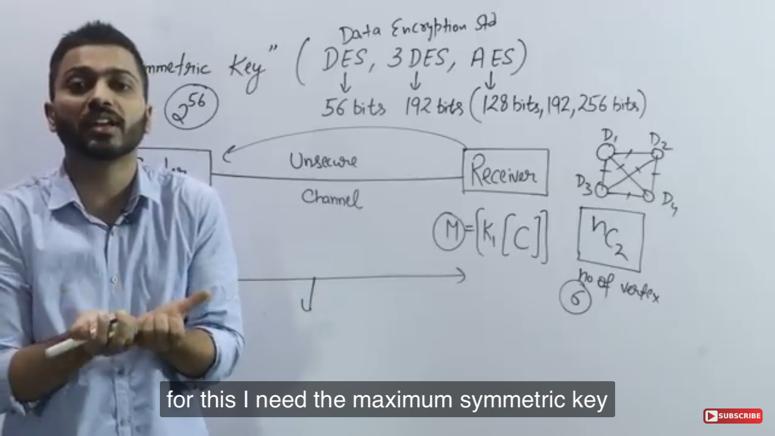 Data Encryption Std
mmetric Key" ( DES, 3DES, AES)
2^56
56 bits 192 bits (128 bits, 192, 256 bits)
D1 D2
Unsecure
Receiver
Channel
D3 D4
M = [K1[C]]
nC2
no of vertex
6
for this I need the maximum symmetric key
SUBSCRIBE